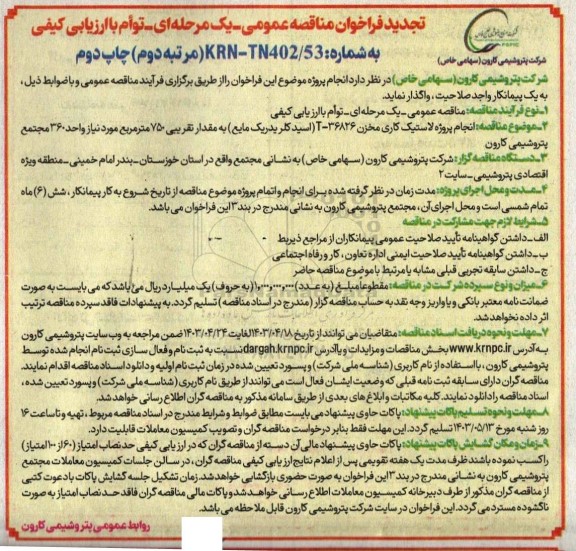 تجدید فراخوان مناقصه عمومی_یک مرحله‌ای_توأم با ارزیابی کیفی
به شماره: KRN-TN402/53 (مرتبه دوم) چاپ دوم
شرکت پتروشیمی کارون (سهامی خاص)
شرکت پتروشیمی کارون (سهامی خاص) در نظر دارد انجام پروژه موضوع این فراخوان را از طریق برگزاری فرآیند مناقصه عمومی و با ضوابط ذیل،
به یک پیمانکار واجد صلاحیت، واگذار نماید.
۱_نوع فرآیند مناقصه: مناقصه عمومی_یک مرحله‌ای_توأم با ارزیابی کیفی
۲_موضوع مناقصه: انجام پروژه لاستیک کاری مخزن T-۳۶۸۲۶ (اسید کلریدریک مایع) به مقدار تقریبی ۷۵۰ مترمربع مورد نیاز واحد ۳۶۰ مجتمع
پتروشیمی کارون
۳_دستگاه مناقصه گزار: شرکت پتروشیمی کارون (سهامی خاص) به نشانی مجتمع واقع در استان خوزستان_بندر امام خمینی_منطقه ویژه
اقتصادی پتروشیمی_سایت ۲
۴_مدت و محل اجرای پروژه: مدت زمان در نظر گرفته شده برای انجام و اتمام پروژه موضوع مناقصه از تاریخ شروع به کار پیمانکار، شش (۶) ماه
تمام شمسی است و محل اجرای آن، مجتمع پتروشیمی کارون به نشانی مندرج در بند ۳ این فراخوان می باشد.
۵_شرایط لازم جهت مشارکت در مناقصه
الف_داشتن گواهینامه تأیید صلاحیت عمومی پیمانکاران از مراجع ذیربط
ب_داشتن گواهینامه تأیید صلاحیت ایمنی اداره تعاون، کار و رفاه اجتماعی
ج_داشتن سابقه تجربی قبلی مشابه یا مرتبط با موضوع مناقصه حاضر
۶_میزان و نوع سپرده شرکت در مناقصه: مقطوعاً مبلغ (به عدد) ۱،۰۰۰،۰۰۰،۰۰۰ (به حروف) یک میلیارد ریال می باشد که می بایست به صورت
ضمانت نامه معتبر بانکی و یا واریز وجه نقد به حساب مناقصه گزار (مندرج در اسناد مناقصه) تسلیم گردد. به پیشنهادات فاقد سپرده مناقصه ترتیب
اثر داده نخواهد شد.
۷_مهلت و نحوه دریافت اسناد مناقصه: متقاضیان می توانند از تاریخ ۱۴۰۳/۰۴/۱۸ لغایت ۱۴۰۳/۰۴/۲۴ ضمن مراجعه به وب سایت پتروشیمی کارون
به آدرس www.krnpc.ir بخش مناقصات و مزایدات و یا آدرس dargah.krnpc.ir نسبت به ثبت نام و فعال سازی ثبت نام انجام شده توسط
پتروشیمی کارون، با استفاده از نام کاربری (شناسه ملی شرکت) و پسورد تعیین شده در زمان ثبت نام اولیه و دانلود اسناد مناقصه اقدام نمایند.
مناقصه گران دارای سابقه ثبت نامه قبلی که وضعیت ایشان فعال است می توانند از طریق نام کاربری (شناسه ملی شرکت) و پسورد تعیین شده،
اسناد مناقصه را دانلود نمایند. کلیه مکاتبات و ابلاغ های بعدی از طریق سامانه مذکور به مناقصه گران اطلاع رسانی خواهد شد.
۸_مهلت و نحوه تسلیم پاکات پیشنهاد: پاکات حاوی پیشنهاد می بایست مطابق ضوابط و شرایط مندرج در اسناد مناقصه مربوط، تهیه و تا ساعت ۱۶
روز شنبه مورخ ۱۴۰۳/۰۵/۱۳ تسلیم گردد. این مهلت فقط بنابر درخواست مناقصه گران و تصویب کمیسیون معاملات قابلیت دارد.
۹_زمان و مکان گشایش پاکات پیشنهاد: پاکات حاوی پیشنهاد مالی آن دسته از مناقصه گران که در ارزیابی کیفی حد نصاب امتیاز (۶۰ از ۱۰۰ امتیاز)
را کسب نموده باشند ظرف مدت یک هفته تقویمی پس از اعلام نتایج ارزیابی کیفی مناقصه گران، در سالن جلسات کمیسیون معاملات مجتمع
پتروشیمی کارون به نشانی مندرج در بند ۳ این فراخوان به صورت حضوری بازگشایی خواهد شد. زمان تشکیل جلسه گشایش پاکات با دعوت کتبی
از مناقصه گران مذکور از طرف دبیرخانه کمیسیون معاملات اطلاع رسانی خواهد شد و پاکات مالی مناقصه گران فاقد حد نصاب امتیاز به صورت
ناگشوده مسترد می گردد. این فراخوان در سایت شرکت پتروشیمی کارون قابل ملاحظه می باشد.
روابط عمومی پتروشیمی کارون